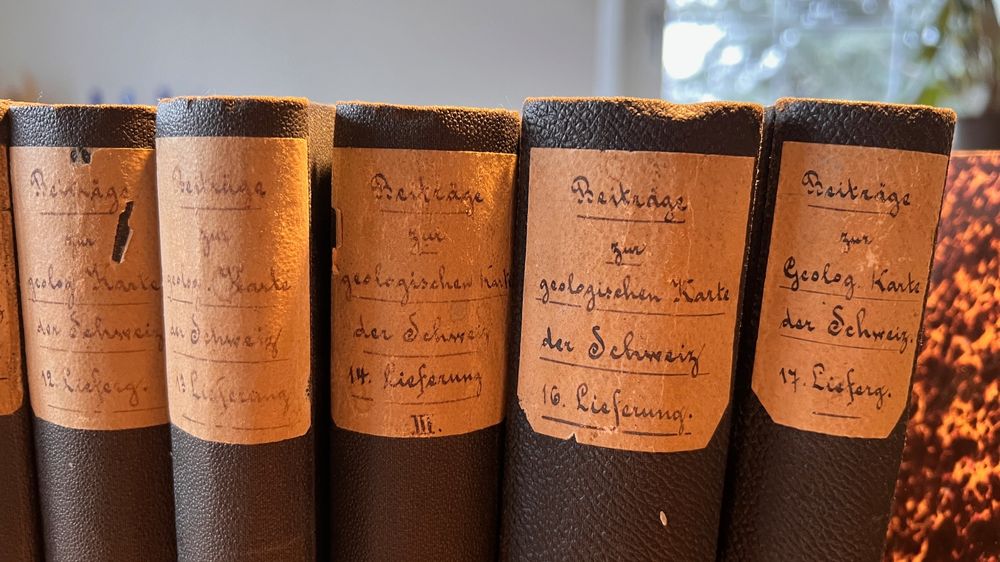 Beiträge
zur
geolog. Karte
der Schweiz
12. Lieferg.
Beiträge
zur
geolog. Karte
der Schweiz
13. Lieferung
Beiträge
zur
geologischen Karte
der Schweiz
14. Lieferung
III.
Beiträge
zur
geologischen Karte
der Schweiz
16. Lieferung.
Beiträge
zur
Geolog. Karte
der Schweiz.
17. Lieferg.